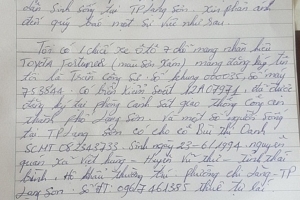 dân. Sinh sống tại TP Lạng Sơn. Xin phản ánh
đến quý báo một sự việc như sau.
Tôi có 1 chiếc xe ô tô 7 chỗ mang nhãn hiệu
Toyota Fortuner (màu sơn Xám) mang đăng ký tên
tôi là Triệu Công Số khung 000035, Số máy
753544. Có biển kiểm soát 12A07971, đã được
đăng ký tại phòng Cảnh sát giao thông Công an
thành phố Lạng Sơn. Và một số người sống
tại TP Lạng Sơn có cho cô Bùi Thị Oanh
SCMT 082543733 Sinh ngày 23-6/1994 nguyên
quán xã Việt Hùng - Huyện Vũ Thư - tỉnh Thái
Bình, Hộ khẩu thường trú: phường Chi Lăng - TP
Lạng Sơn. Số ĐT: 0967461385 thuê tự lái